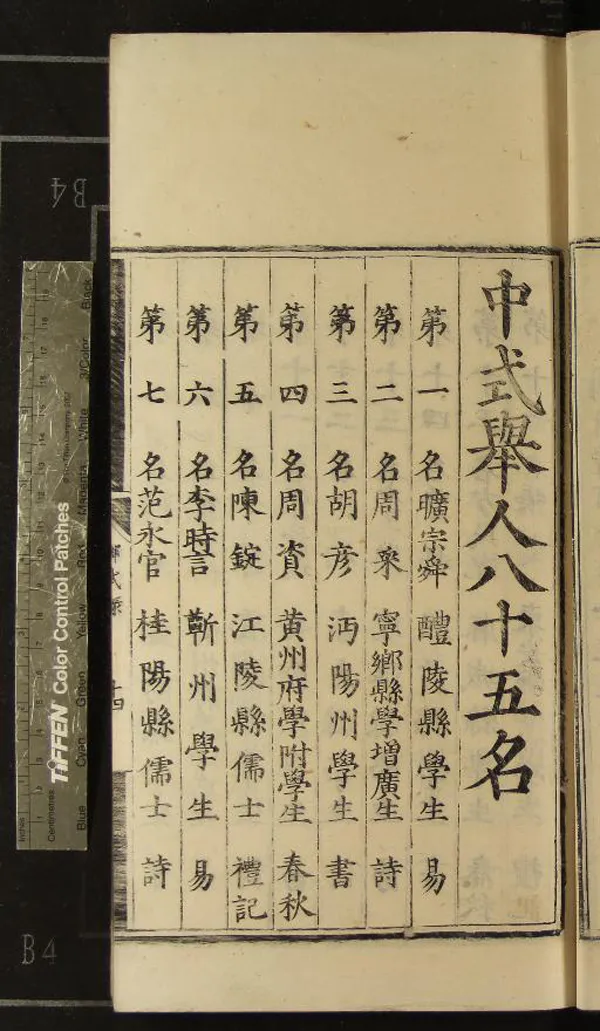 中式舉人八十五名
第一名曠宗舜 醴陵縣學生 易
第二名周 寀 寧鄉縣學增廣生 詩
第三名胡彦 沔陽州學生 書
第四名周資 黃州府學附學生 春秋
第五名陳錠 江陵縣儒士 禮記
第六名李時言 蘄州學生 易
第七名范永官 桂陽縣儒士 詩
鄉試錄 十四
B4
TIFFEN Color Control Patches
Inches
Centimetres
Blue Cyan Green Yellow Red Magenta White 3/Color Black
B4